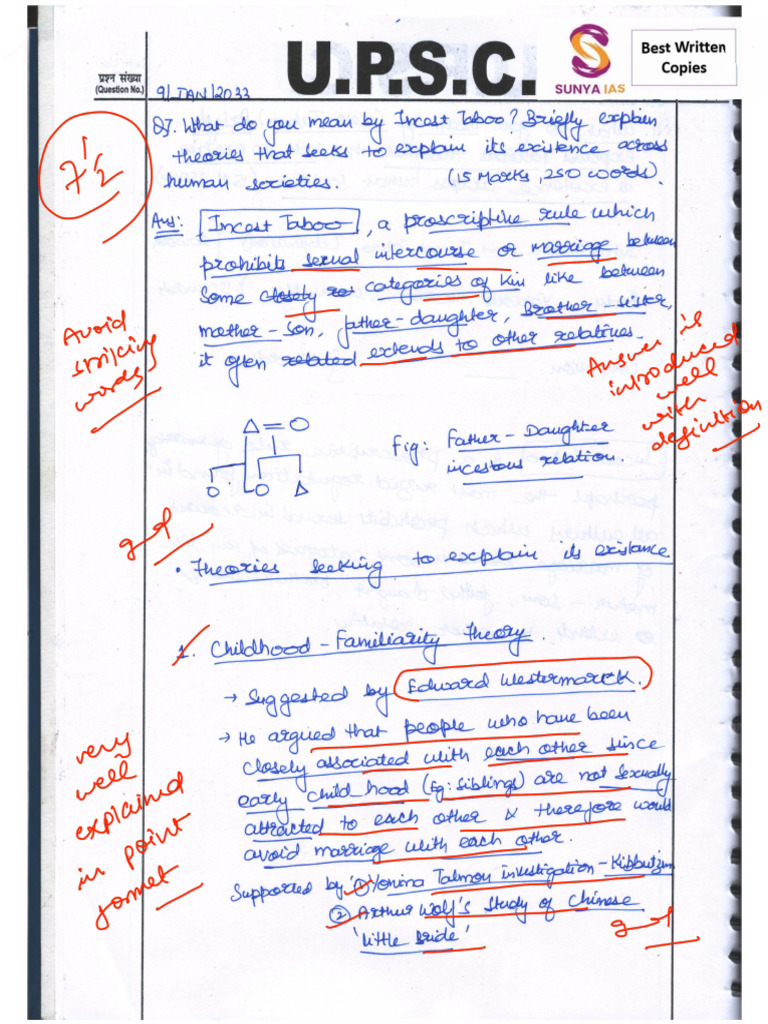 U.P.S.C.
SUNYA IAS
Best Written
Copies
प्रश्न संख्या
(Question No.)
9/JAN/2033
7 1/2
Q7. What do you mean by Incest Taboo? Briefly explain
theories that seeks to explain its existence across
human societies. (15 Marks, 250 words).
Ans: Incest Taboo, a proscriptive rule which
prohibits sexual intercourse or marriage between
some closely categories of kin like between
mother-son, father-daughter, Brother-sister,
it often related extends to other relatives.
Avoid
striking
words
Answer is
introduced
well
with
definition
Fig: Father-Daughter
incestous relation.
good
• Theories seeking to explain its existance
1. Childhood-Familiarity Theory.
→ Suggested by Edward Westermarck.
→ He argued that people who have been
closely associated with each other since
early child hood (Eg: Siblings) are not sexually
attracted to each other & therefore would
avoid marriage with each other.
very
well
explained
in point
format
Supported by ① Yonina Talmon investigation - Kibbutzim
② Arthur Wolf's study of Chinese
'little bride'
good